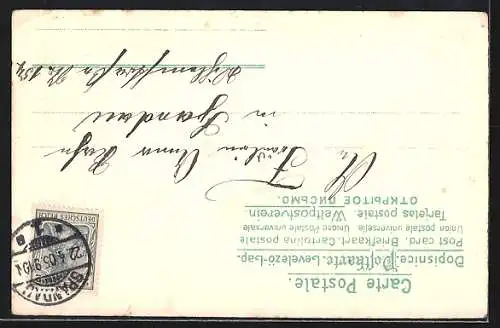 Carte Postale.
Dopisnice. Postkarte. Levelező-lap.
Post card. Briefkaart. Cartolina postale
Union postale universelle Unione postale universale
Tarjetas postale. Weltpostverein.
ОТКРЫТОЕ ПИСЬМО.
An
Fräulein Anna
in Spandau
DEUTSCHES REICH
SPANDAU